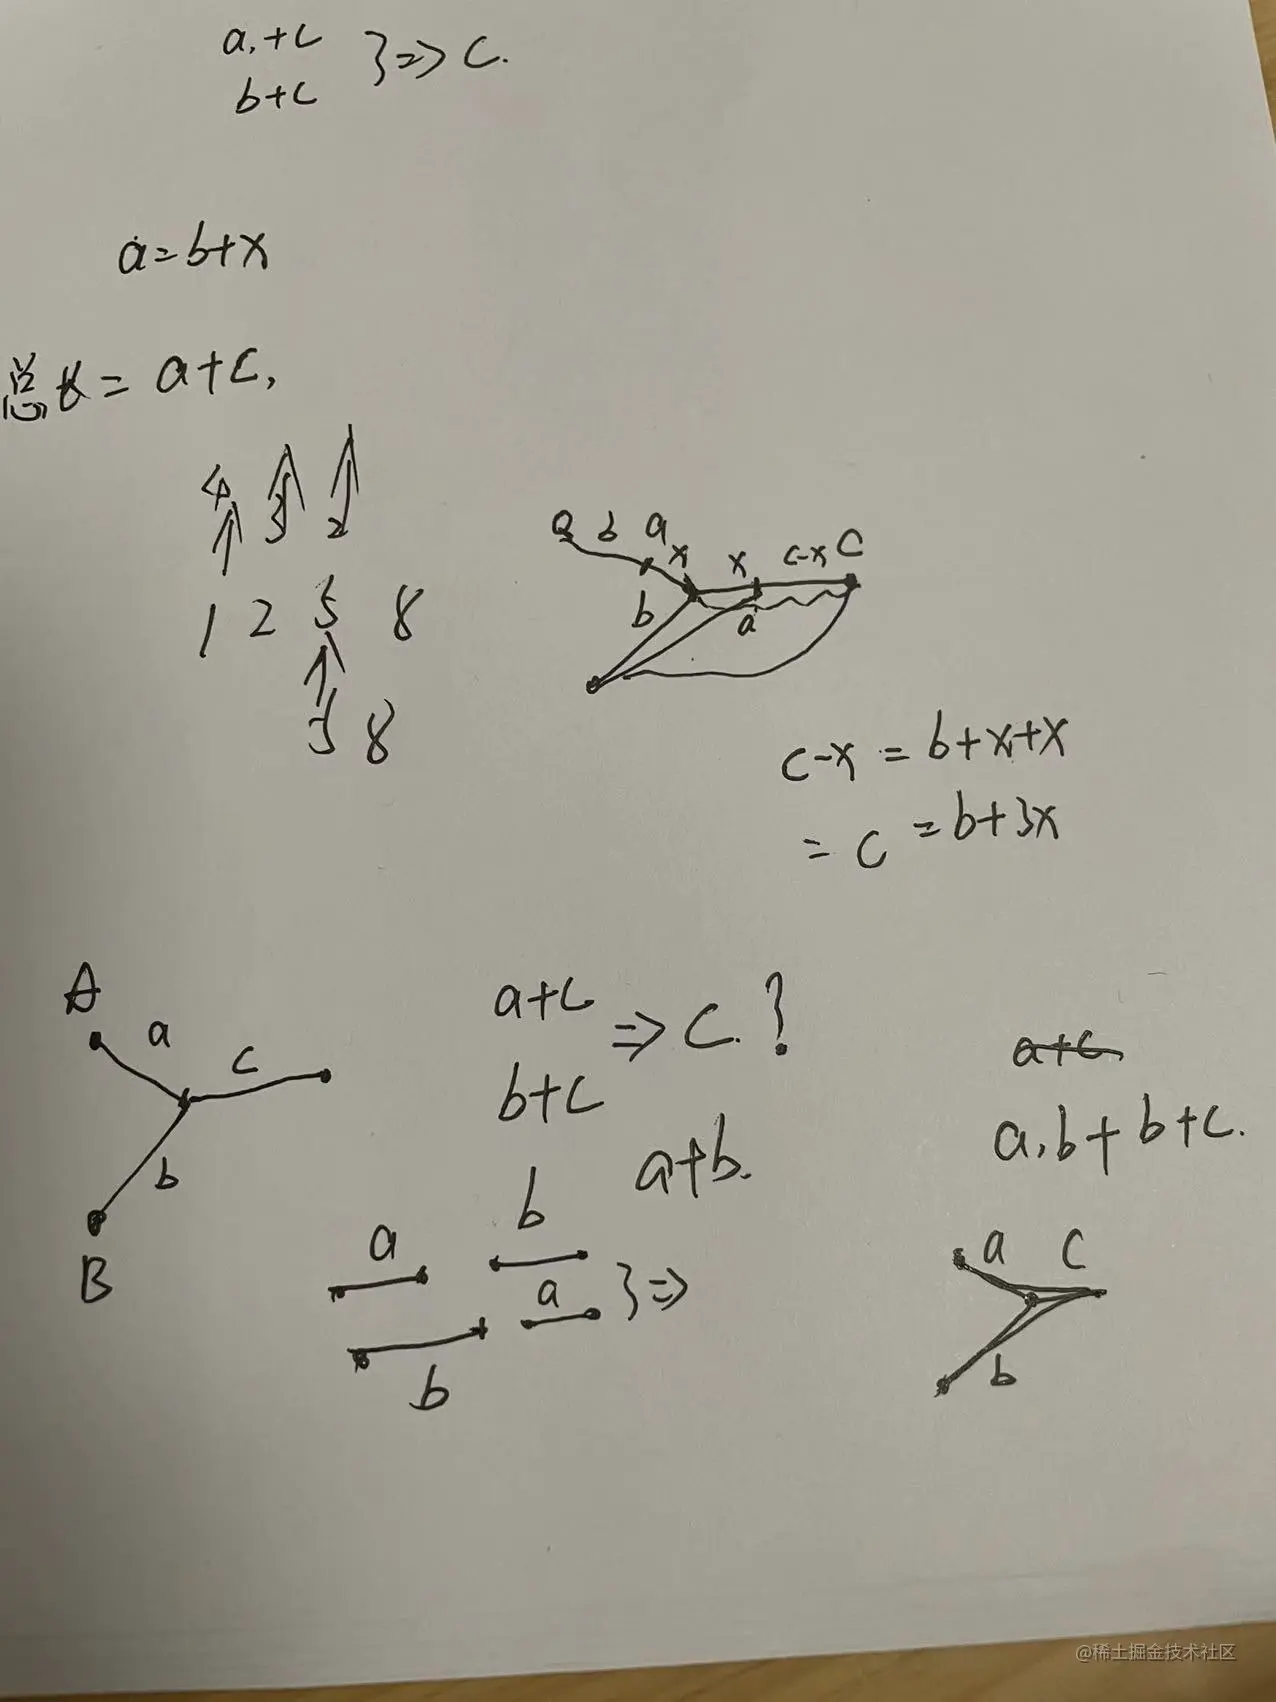 a,+c
b+c
}=> c.
a=b+x
总长= a+c,
4 3 2
1 2 5 8
5 8
b a
x x c-x C
b a
c-x = b+x+x
= c = b+3x
A
a c
b
B
a+c
b+c
=> c. ?
a+b.
a+c,
a,b+b+c.
a b
b a
}=>
a c
b
@稀土掘金技术社区